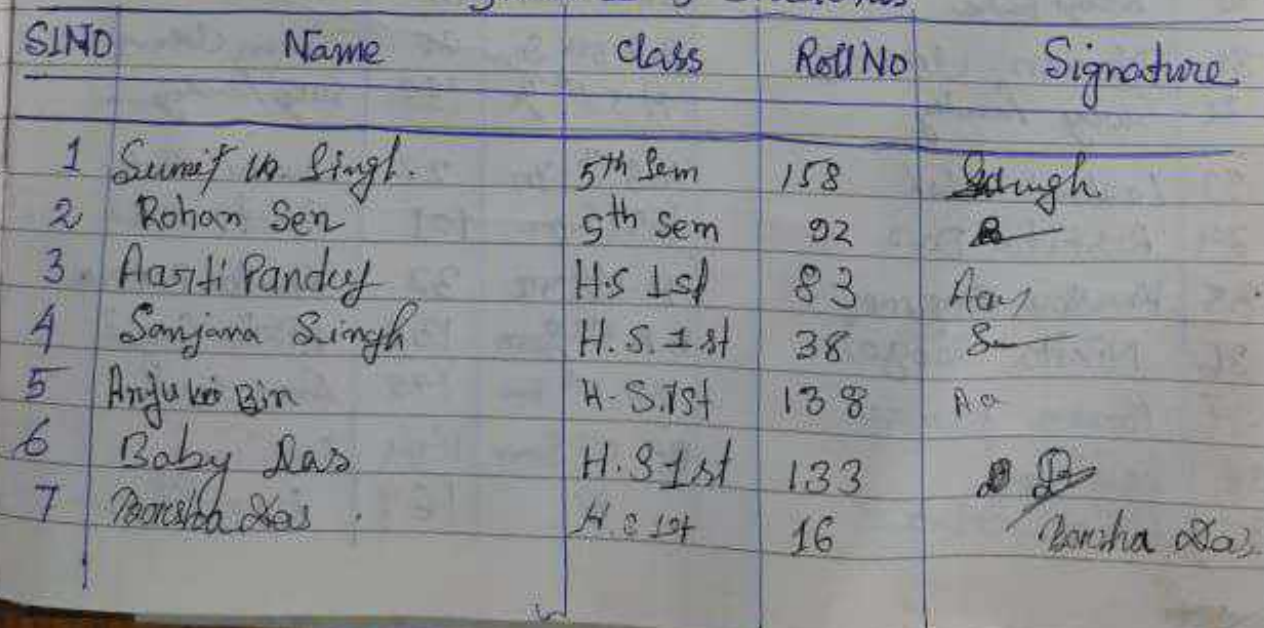 SINO Name class Roll No Signature
1 Sumit kr. Singh. 5th Sem 158 Singh
2 Rohan Sen 5th Sem 92
3 Aarti Pandey H.S 1st 83 Aay
4 Sanjana Singh H.S. 1st 38 S
5 Anju kr Bin H-S.1st 138 Aa
6 Baby Das H.S 1st 133 B
7 Barsha Das. H.S 1st 16 Barsha Das